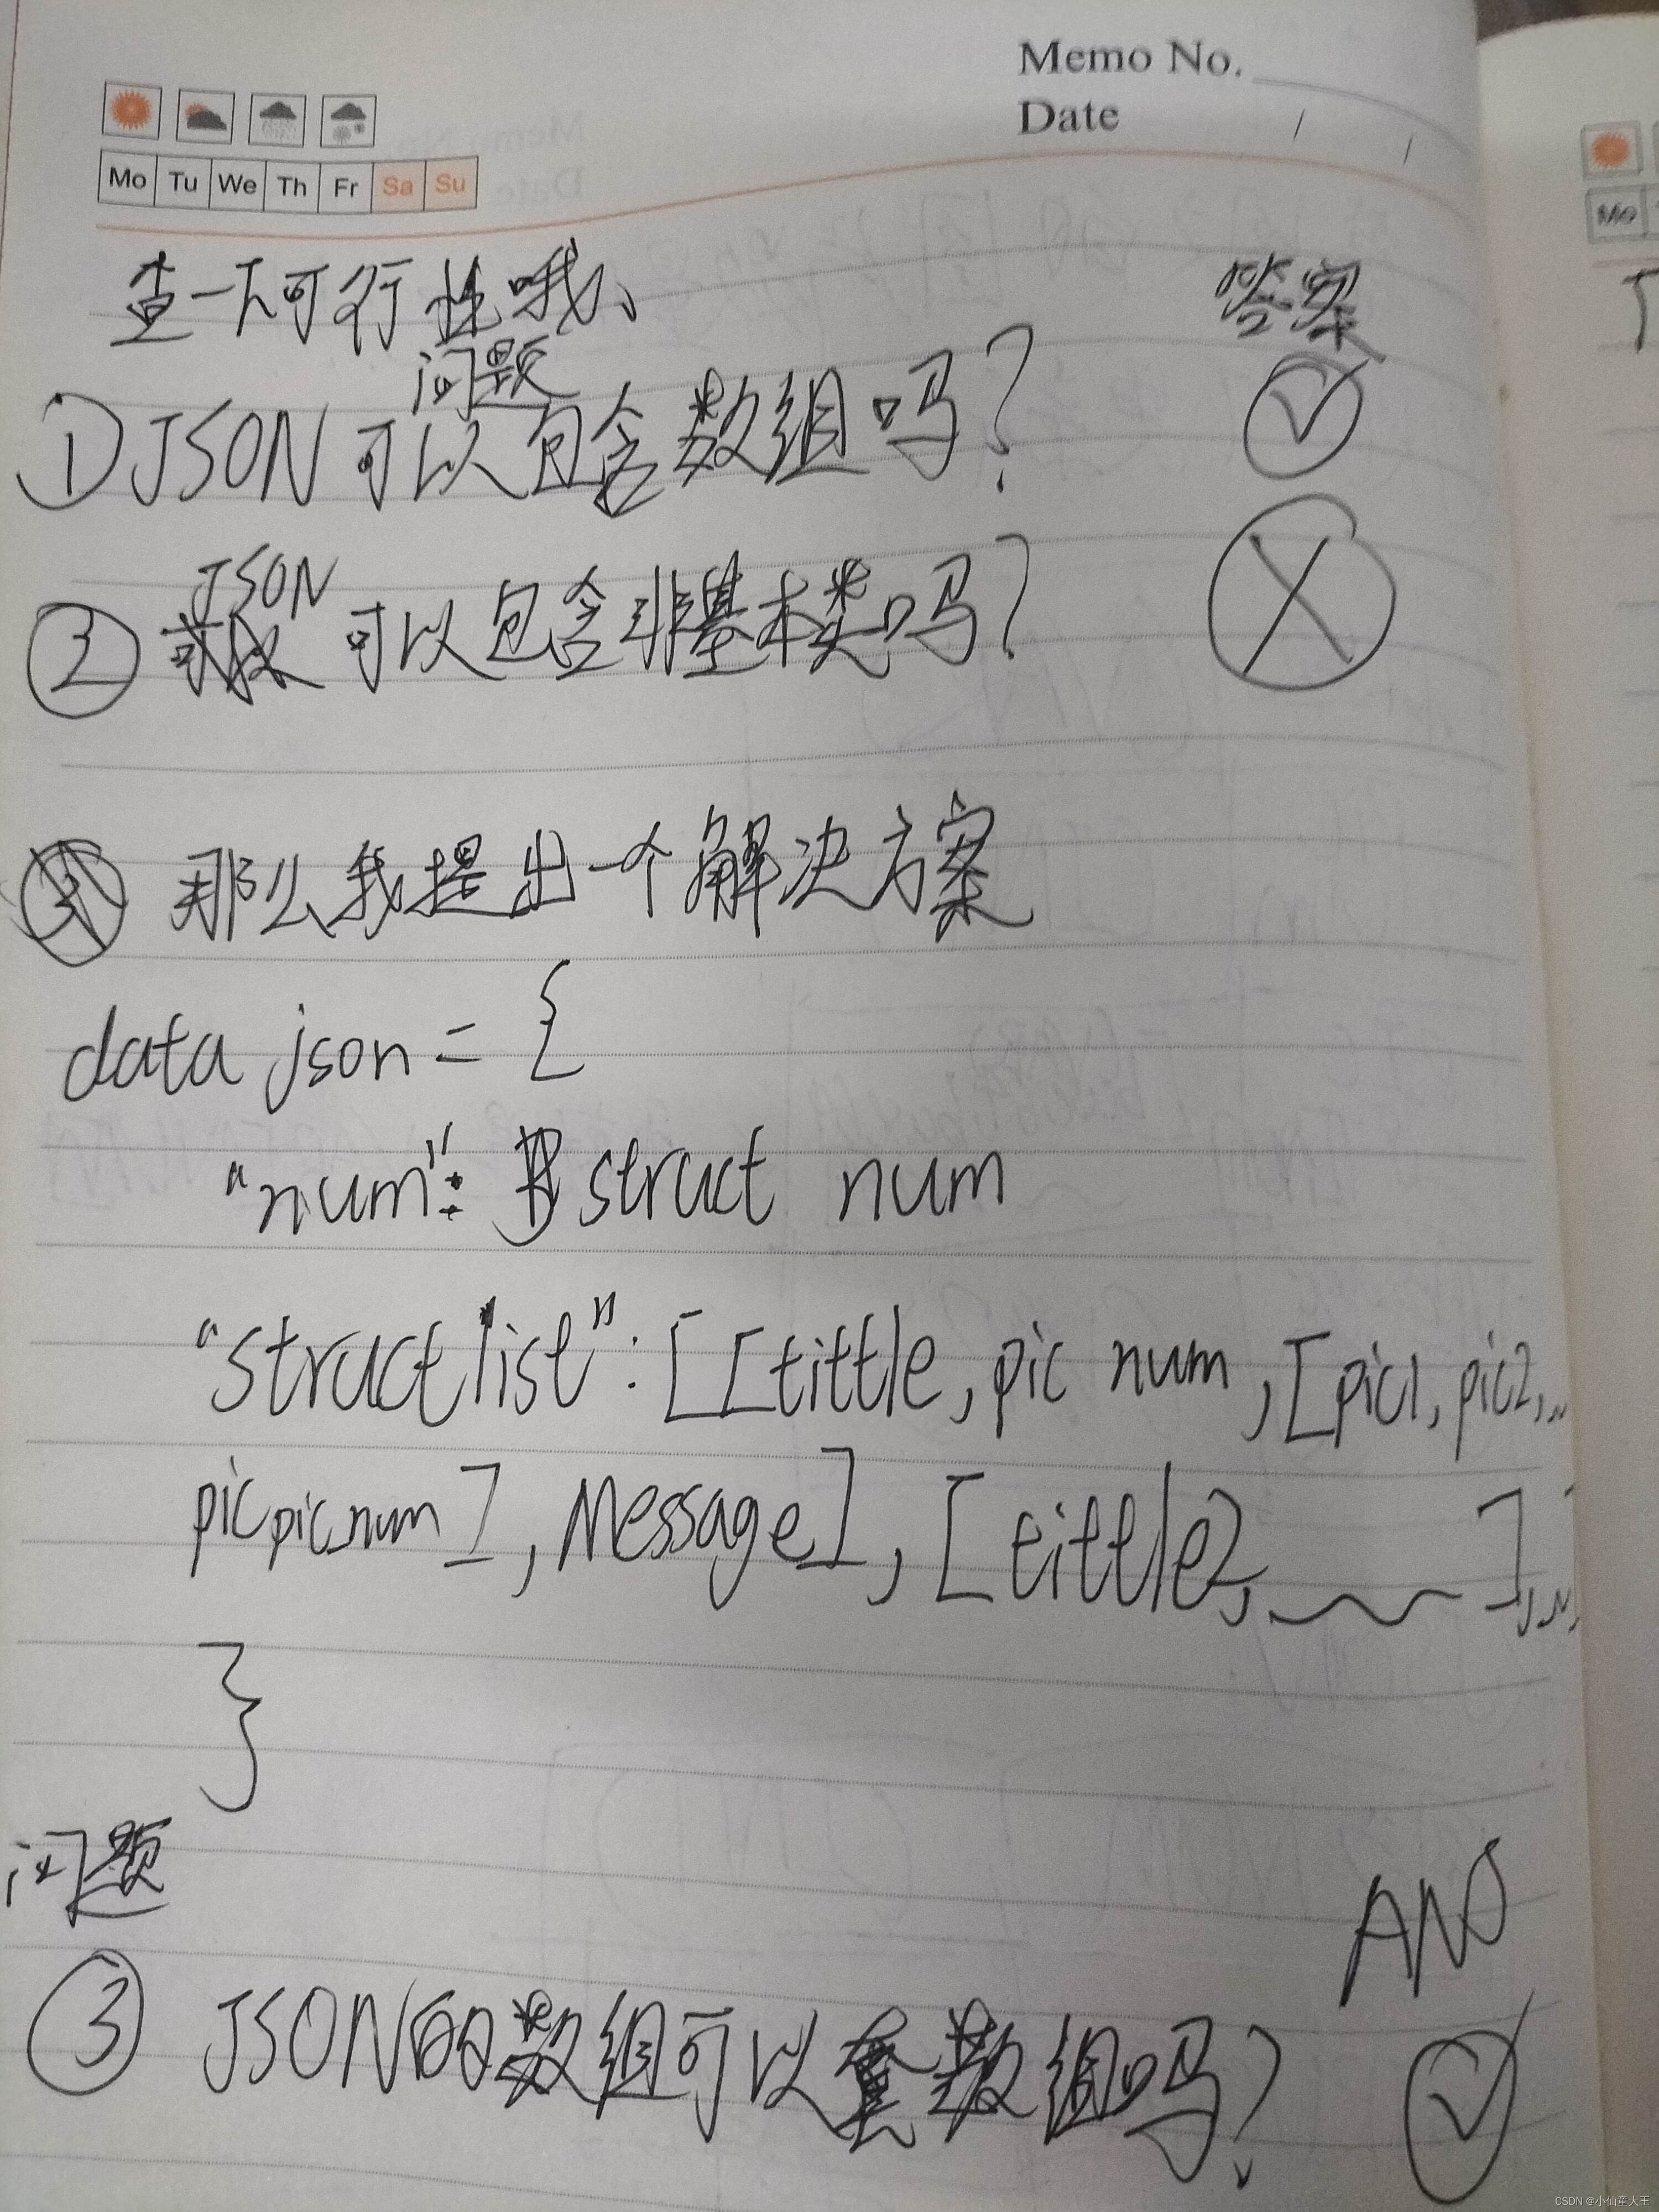 Memo No.
Date / /
Mo Tu We Th Fr Sa Su
Mo
查一下可行性哦、
答案
问题
①JSON可以包含数组吗?
JSON
② 可以包含非基本类吗?
那么我提出一个解决方案
data json = {
"num": struct num
"struct list": [[tittle, pic num, [pic1, pic2, ...
picpic_num], Message], [tittle2, ~~],...
}
问题
ANS
③ JSON的数组可以套数组吗?
CSDN @小仙童大王